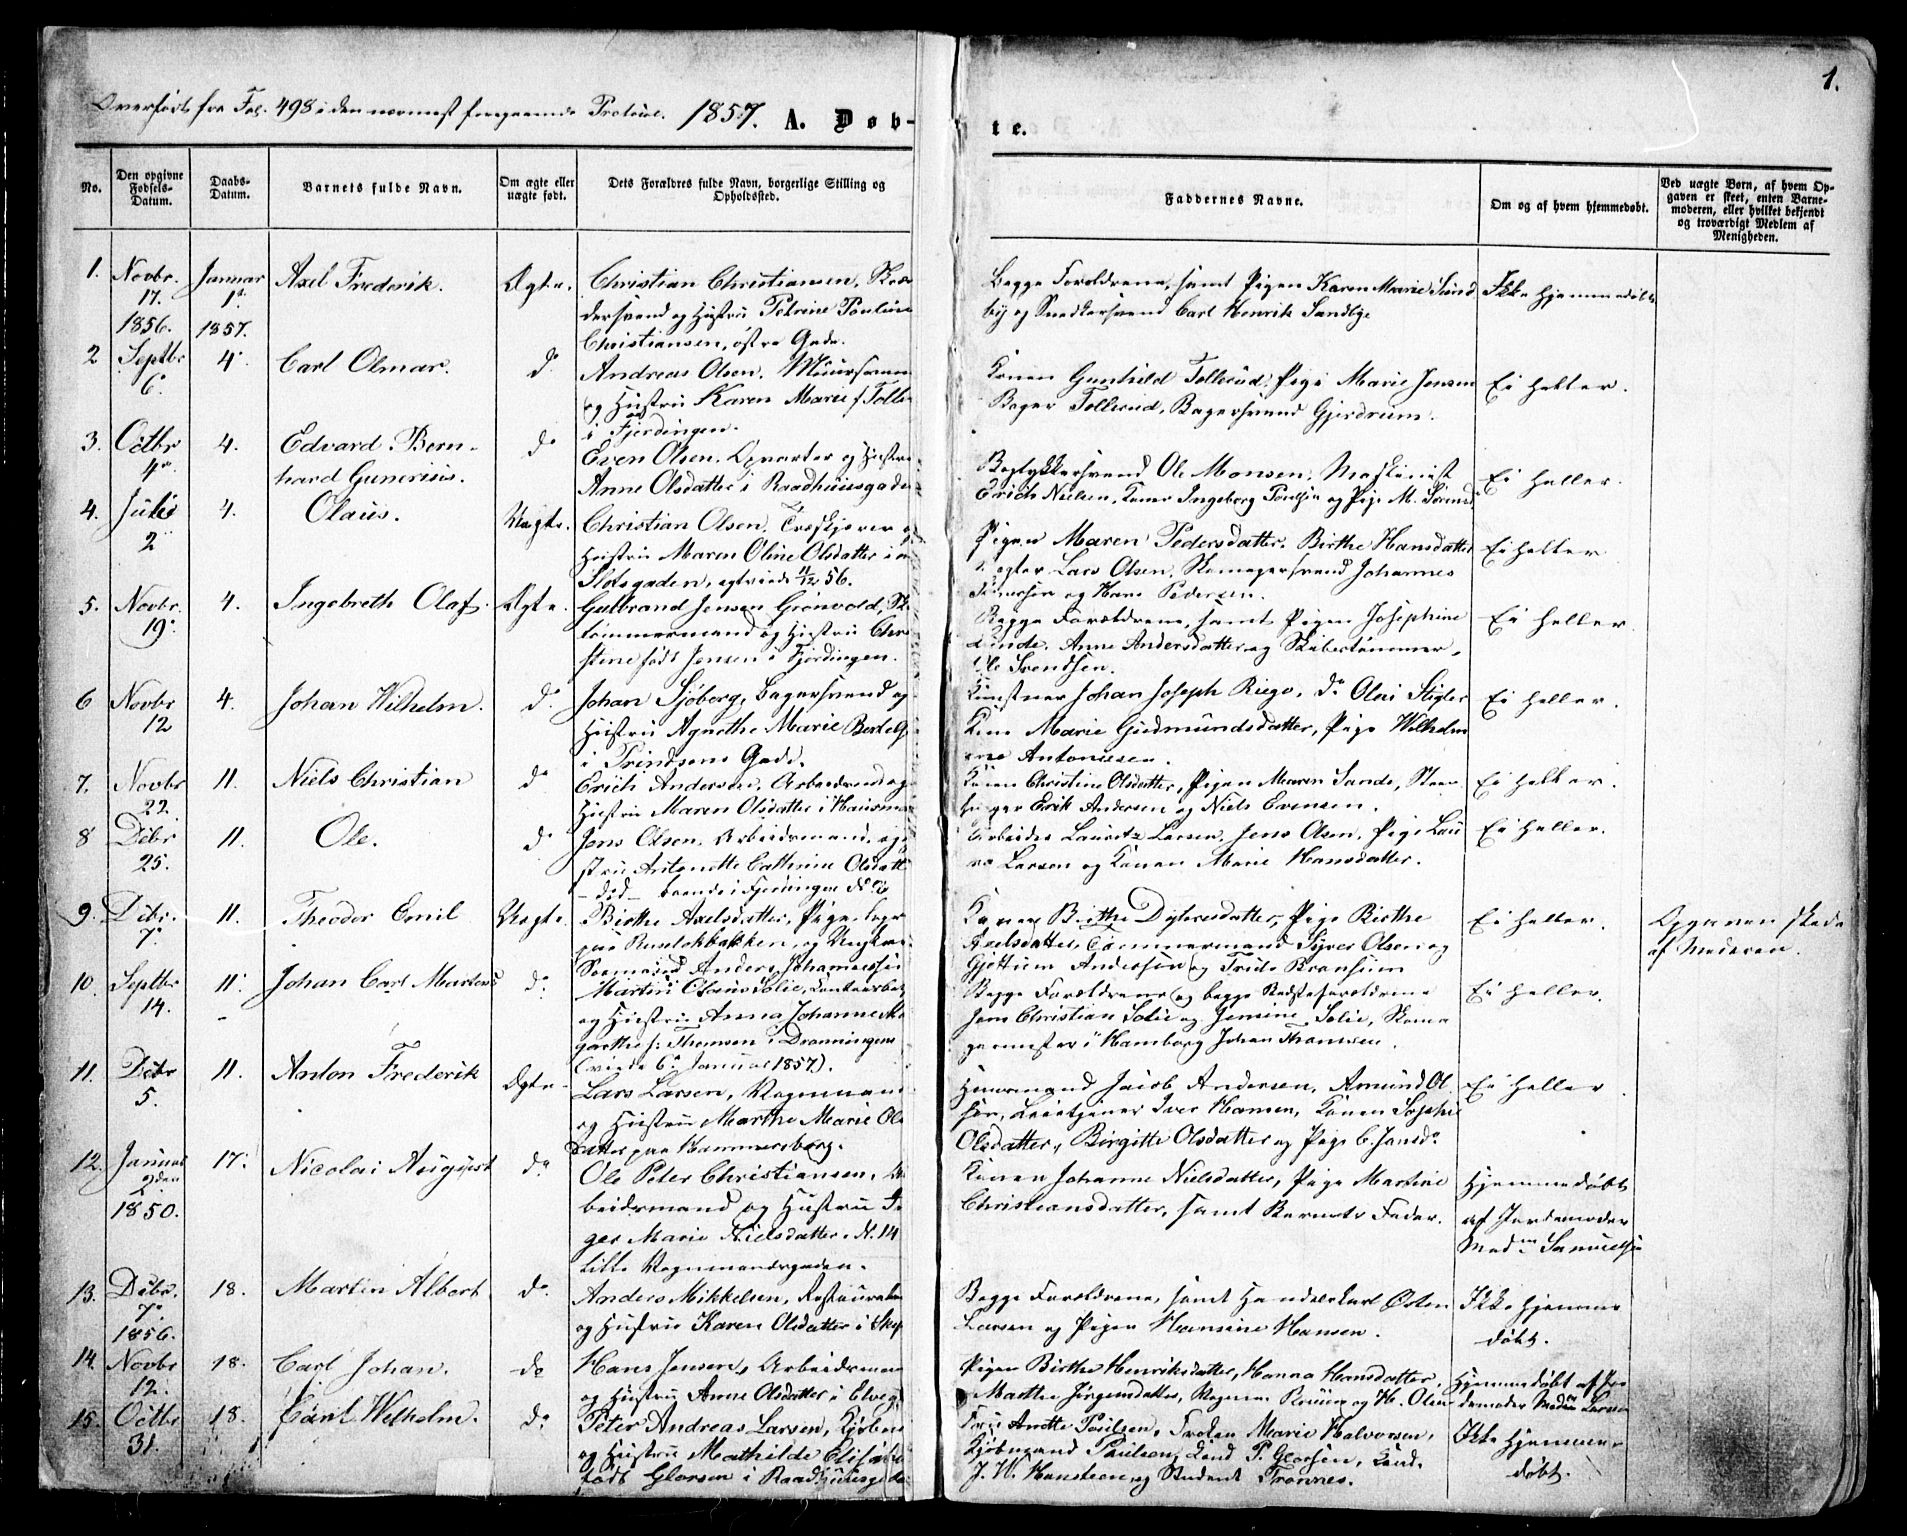 1.
Overført fra Fol. 498 i den nærmest foregaaende Protocol. 1857. A. Døb-
te.
No.
Den opgivne Fødsels-Datum.
Daabs-Datum.
Barnets fulde Navn.
Om ægte eller uægte født.
Dets Forældres fulde Navn, borgerlige Stilling og Opholdssted.
Faddernes Navne.
Om og af hvem hjemmedøbt.
Ved uægte Børn, af hvem Opgaven er skeet, enten Barnemoderen, eller hvilket bekjendt og troværdigt Medlem af Menigheden.
1. Novbr. 17. 1856. Januar 1st 1857. Axel Frederik. Ægte.
Christian Christiansen, Skræ
dersvend og Hustru Petrine Pouline
Christiansen, østre Gade.
Begge Forældrene, samt Pigen Karen Marie Sund
by og Snedkersvend Carl Henrik Sandbye
Ikke hjemmedøbt
2 Septbr 6. 4. Carl Olmar. do
Andreas Olsen, Muursvend
og Hustru Karen Marie f Tolle
i Fjerdingen.
Konen Gunhild Tollerud, Pige Marie Jensen
Bager Tollerud, Bagersvend Gjerdrum.
Ei heller.
3. Octbr 4. 4. Edvard Bern-
hard Gunerius. do
Even Olsen, Opvarter og Hustru
Anne Olsdatter i Raadhuusgaden
Bogtykkersvend Ole Monsen, Maskinist
Erich Nielsen, Kone Ingeborg Poulsen og Pige M.
Ei heller.
4. Juli 2 4. Olaus. Uægte.
Christian Olsen, Træskjærer og
Hustru Maren Oline Olsdatter i
Slotsgaden, egtviede 4/12 56.
Pigen Maren Pedersdatter, Birthe Hansdatter
Lars Olsen, Skomagersvend Johannes
og Hans Pedersen.
Ei heller
5. Novbr. 19. 4. Ingebreth Olaf. Ægte.
Gulbrand Jensen Grønvold, Sk
tømmermand og Hustru Chri
stine født Jensen i Fjerdingen.
Begge Forældrene, samt Pigen Josephine
Lunde, Anne Andersdatter og Skibstømmer.
Ole Svendsen.
Ei heller.
6 Novbr 12 4. Johan Wilhelm. do.
Johan Sjöberg, Bagersvend og
Hustru Agnethe Marie Bertel
i Prindsens Gade.
Kunstner Johan Joseph Riego, do Olai Stigler
Kone Marie Gudmundsdatter, Pige Wilhelm
ine Antonisen.
Ei heller.
7. Novbr 22. 11. Niels Christian do
Erich Andersen, Arbeidsmand og
Hustru Maren Olsdatter i Hausman
Konen Christine Olsdatter, Pigen Maren Sande, Steen
hugger Erik Andersen og Niels Evensen.
Ei heller.
8 Debr 25. 11. Ole. do
Jens Olsen, Arbeidsmand, og Hu
stru Antonette Cathrine Olsdatt
Arbeider Lauritz Larsen, Jens Olsen, Pige Lau
ra Larsen og Konen Marie Hansdatter.
Ei heller.
9. Debr. 7. 11. Theodor Emil Uægte.
Birthe Axelsdatter, Pige,
paa Ruseløkbakken, og Ungkarl
Sømand Anders Johannessen
Konen Birthe Dyhresdatter, Pige Birthe
Axelsdatter, Tømmermand Syver Olsen og
Gjøttum Andersen og Truls Bransrum
Ei heller.
Opgaven skede
af Moderen.
10. Septbr 14. 11. Johan Carl Martens do
Martin Claus Solie, Contoirbetj
og Hustru Anna Johanne Ma
garethe f: Thomsen i Dronningens
(viede 6 Januar 1857).
Begge Forældrene og begge Bedsteforældrene
Jens Christian Solie og Jensine Solie, Skoma
germester i Hamborg Johan Thomsen.
Ei heller.
11. Debr 5. 11. Anton Frederik Ægte
Lars Larsen, Vognmand
og Hustru Marthe Marie Ols
datter paa Hammersborg.
Huusmand Jacob Andersen, Amund Ol
sen, Leietjener Iver Hansen, Konen Sophie
Olsdatter, Birgitte Olsdatter og Pige C. Jansd.
Ei heller
12. Januar 9den 1850. 17. Nicolai August do
Ole Peter Christiansen, Ar
beidsmand og Hustru In
ger Marie Nielsdatter. N. 14
Lille Vognmandsgaden.
Konen Johanne Nielsdatter, Pige Martine
Christiansdatter, samt Barnets Fader.
Hjemmedøbt
af Jordemoder
Madm Samuelsen
13. Debr. 7. 1856. 18. Martin Albert do.
Anders Mikkelsen, Restauratør
og Hustru Karen Olsdatter i Skip
Begge Forældrene, samt Handelskarl Østen
Larsen og Pigen Hansine Hansen.
Ikke hjemme
døbt.
14. Novbr 12. 18. Carl Johan. do
Hans Jensen, Arbeidsmand
og Hustru Anne Olsdatter i Elveg
Pigen Birthe Henriksdatter, Hanna Hansdatter,
Marthe Jörgensdatter, Vognm. og H. Olsen
Hjemmedøbt af Jor
demoder Madm Larsen
15. Octbr 31. 18. Carl Wilhelm. do
Peter Andreas Larsen, Kjøbm
og Hustru Mathilde Elisabet
født Glørsen i Raadhuusgaden
Fru Anette Paulsen, Frøken Marie Halvorsen,
Kjøbmand Paulsen, Cand P. Glørsen, Cand.
J. W. Hansteen og Student Trønnes.
Ikke hjemme
døbt.